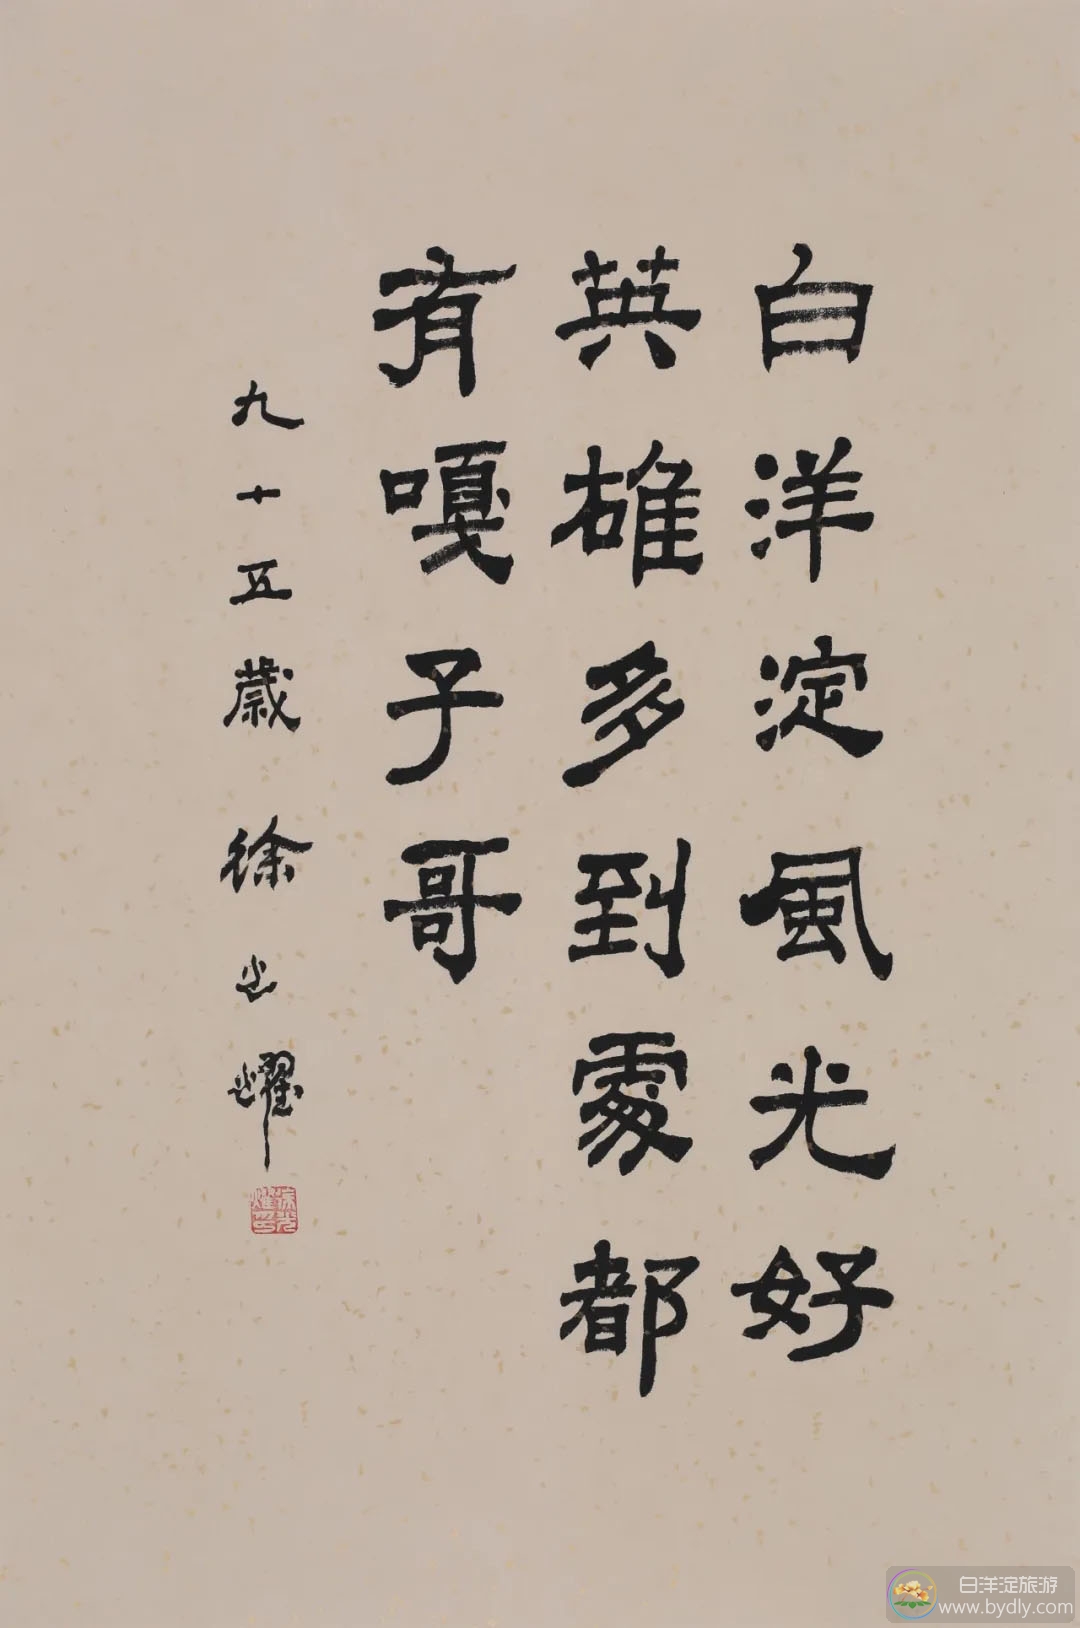 白洋淀風光好
英雄多到處都
有嘎子哥
九十五歲 徐光耀
徐光耀印
白洋淀旅游
www.bydly.com